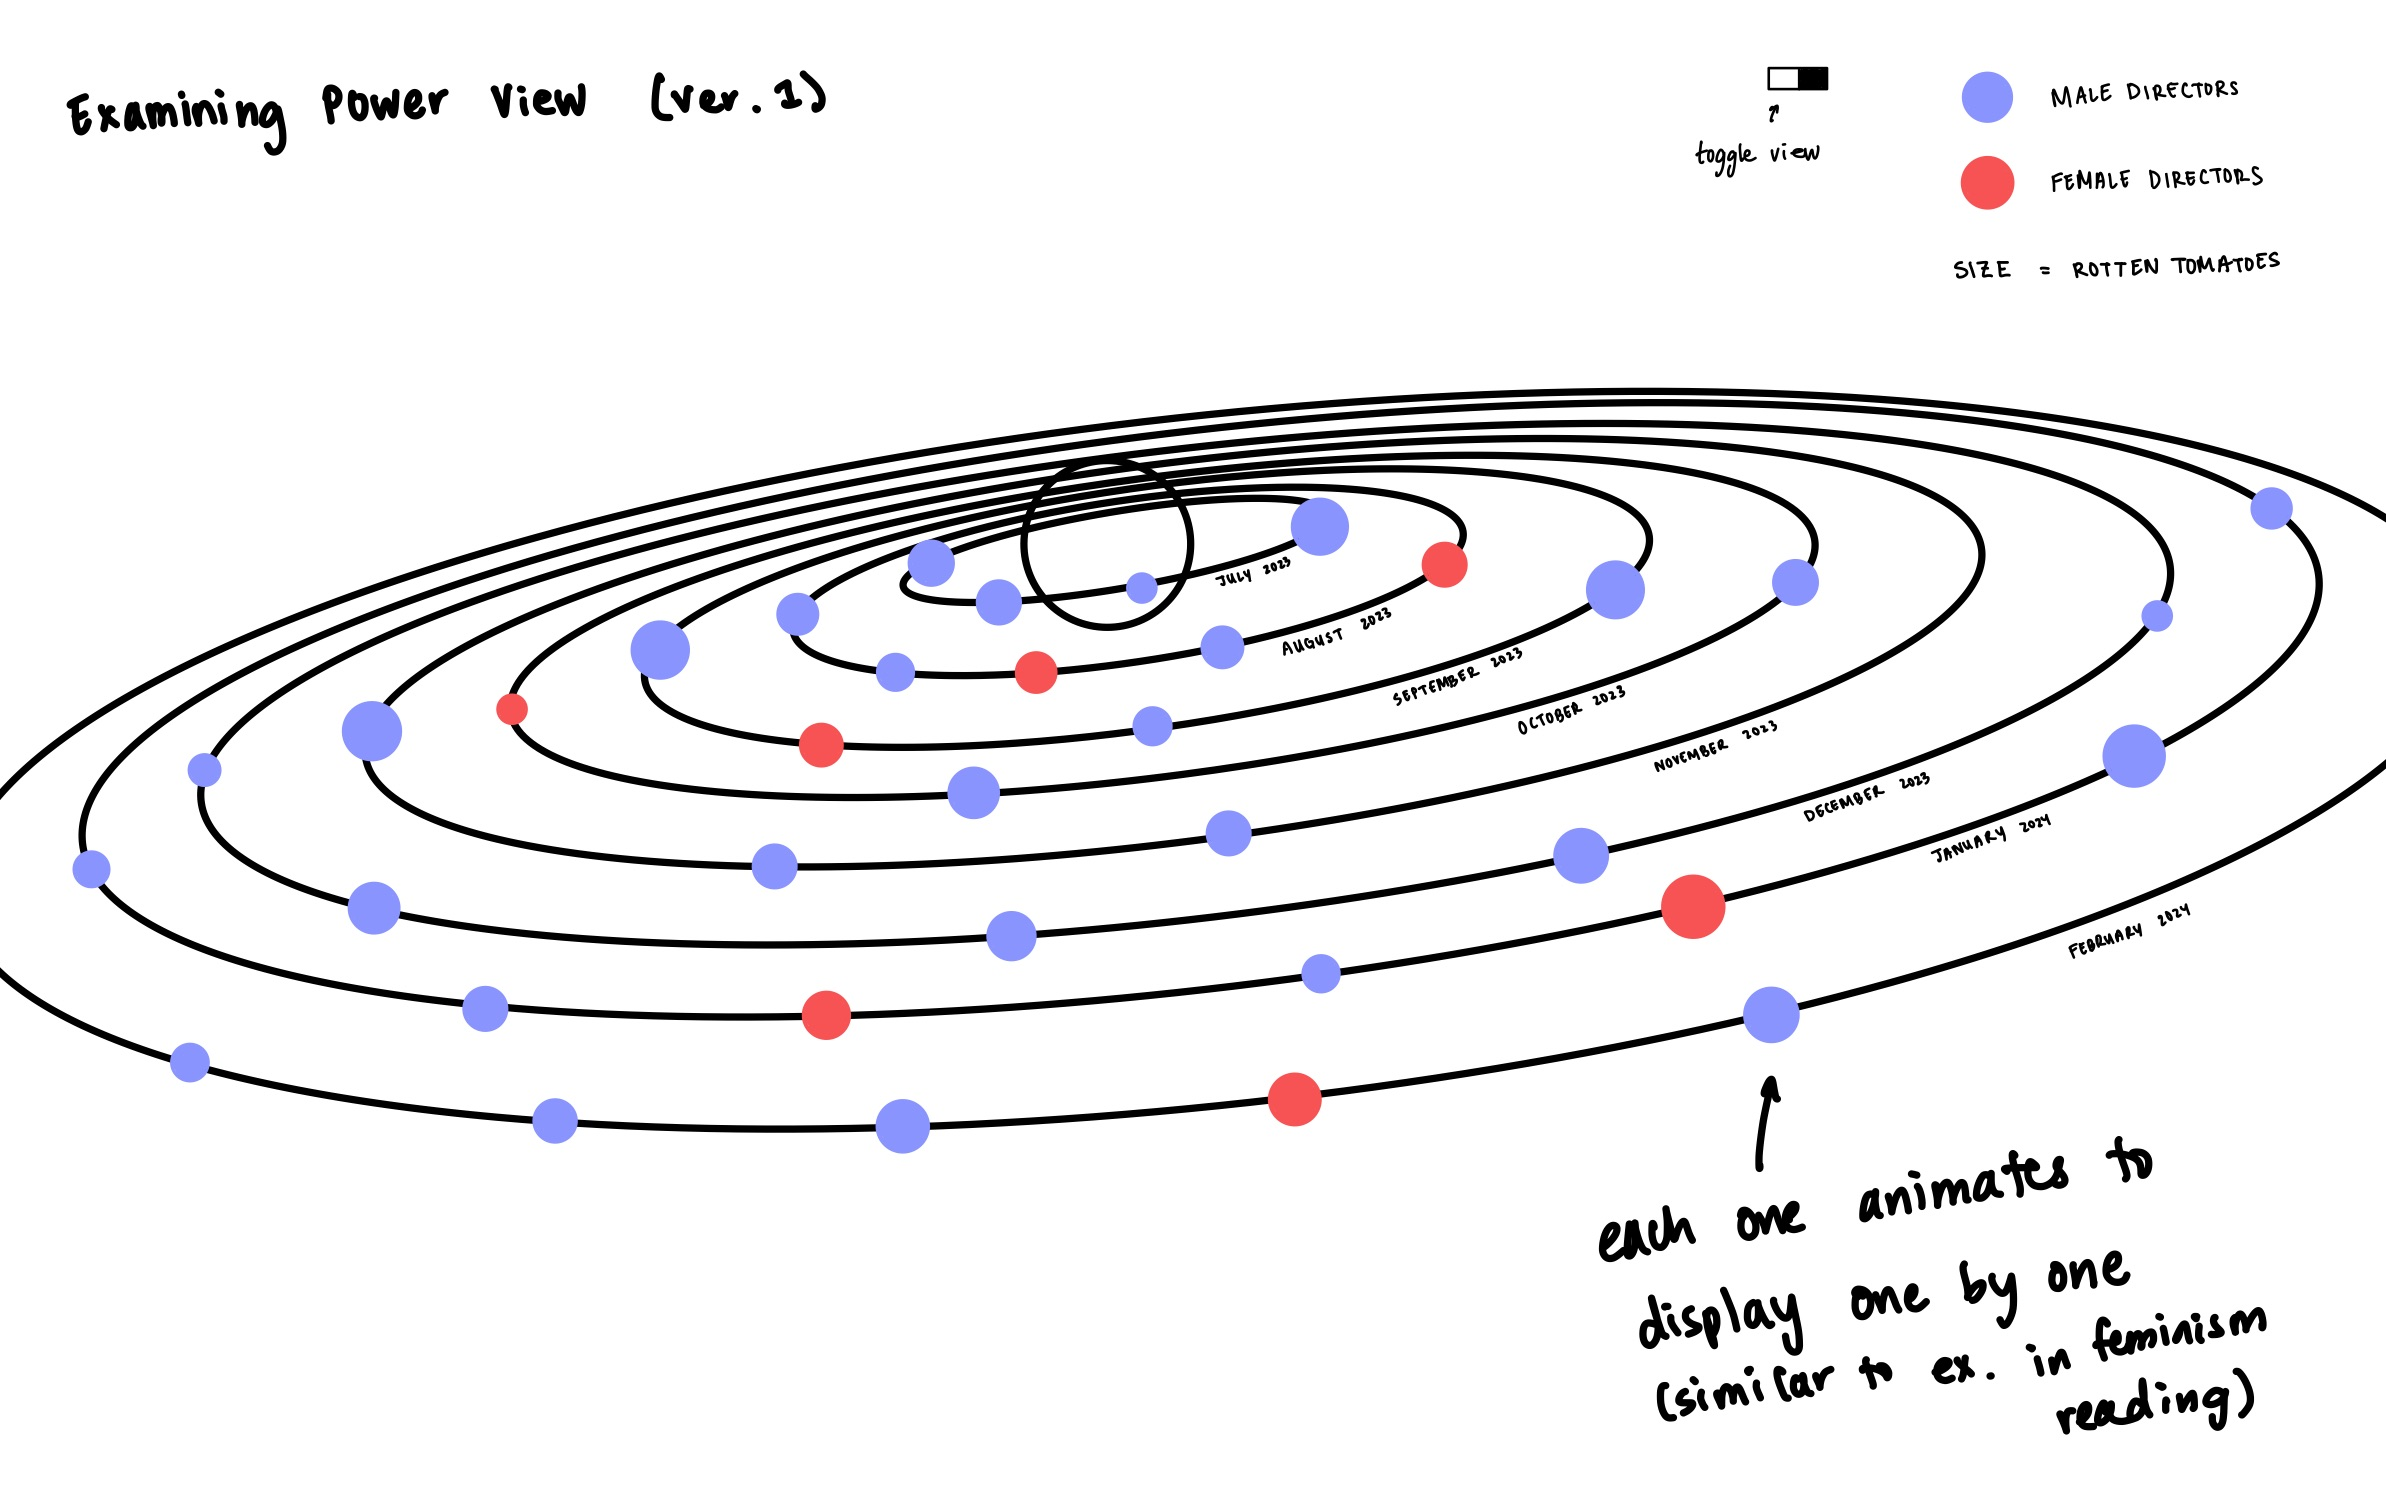 Examining Power View (ver. 1)
toggle view
MALE DIRECTORS
FEMALE DIRECTORS
SIZE = ROTTEN TOMATOES
JULY 2023
AUGUST 2023
SEPTEMBER 2023
OCTOBER 2023
NOVEMBER 2023
DECEMBER 2023
JANUARY 2024
FEBRUARY 2024
each one animates to
display one by one
(similar to ex. in feminism
reading)